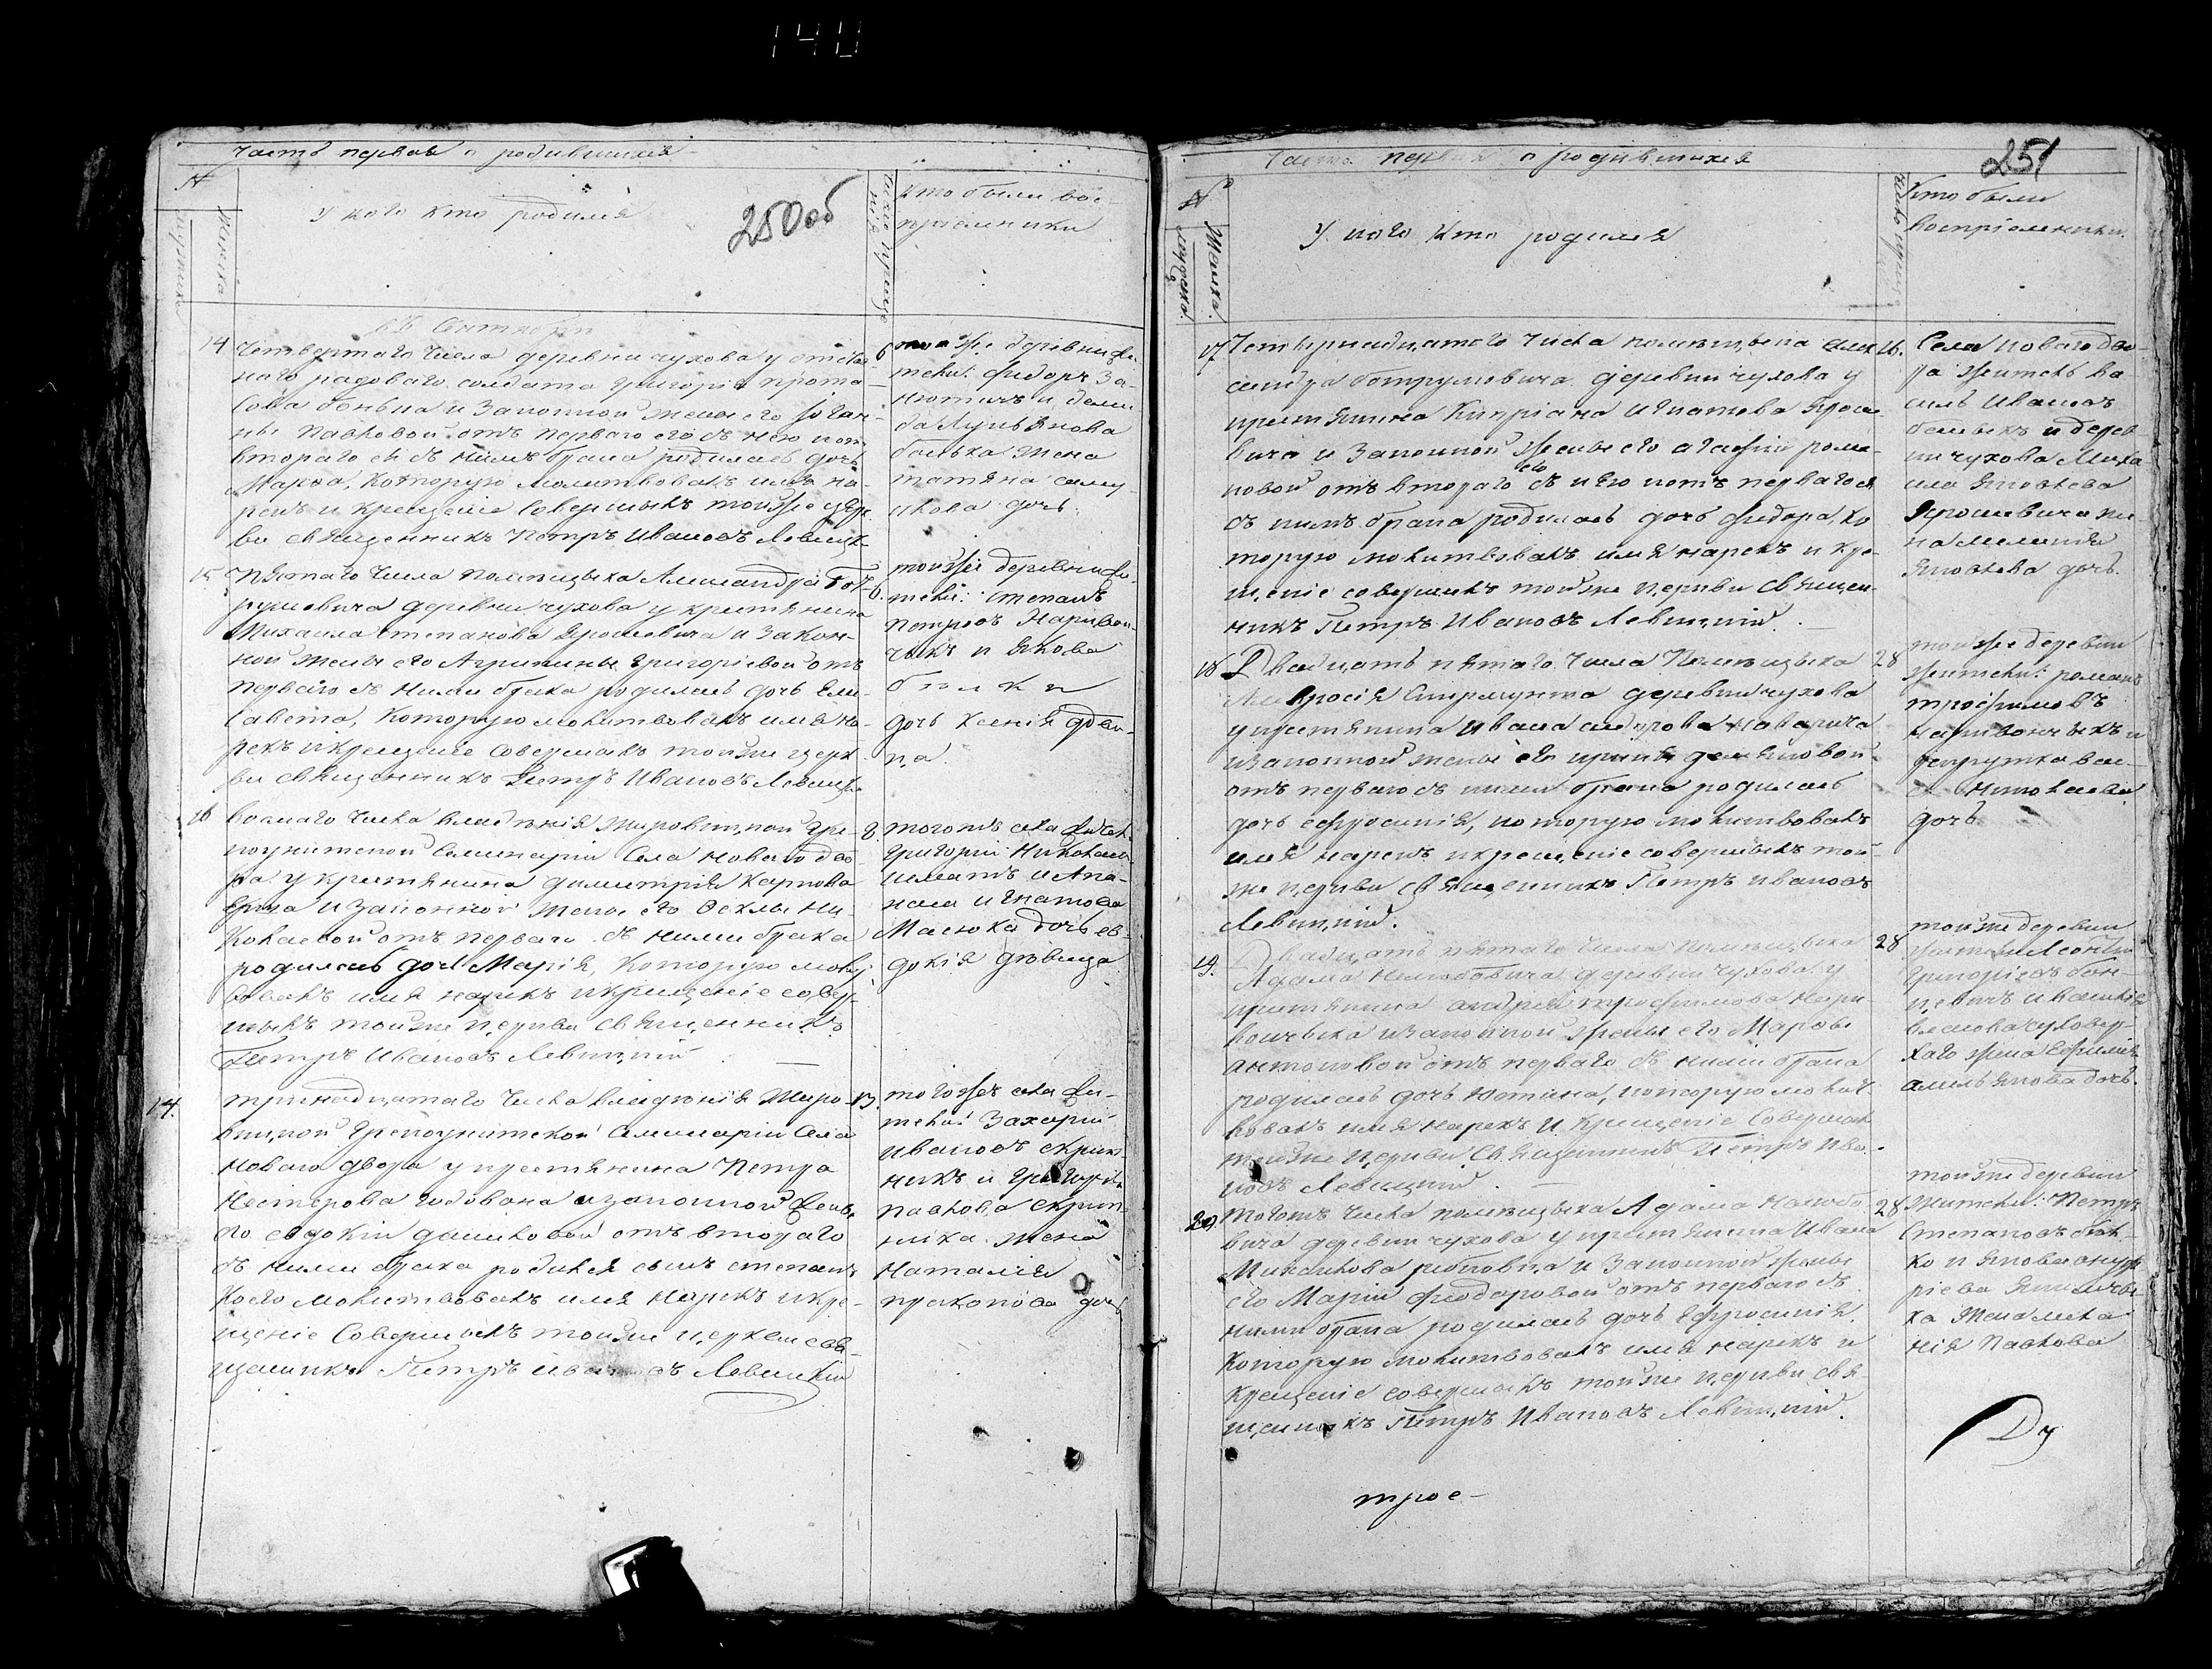 140
Часть первая о родившихся
250об
№
Мужска
Женска
У кого кто родился
число крещен
кто были вос-
приемники
въ Сентябри
14
Четвертаго числа деревни чухова у отстав-
наго радоваго солдата григорія прота-
сова и законной жены его Іоган-
ны павловой отъ перваго его съ нею и отъ
втораго ей съ нимъ брака родилась дочь
Марѳа, которую молитвовалъ имя на-
рекъ и крещеніе совершилъ тойже церк-
ви священникъ Петръ Ивановъ Левицк
6
тойже деревни жи-
тели: Федоръ За-
и
да Лукьянова
жена
татяна саму-
илова дочь
15
Пятаго числа помѣщика Александра Бот-
румовича деревни чухова у крестянина
Михаила степанова Ярошевича и закон-
ной жены его Агрипины григоріевой отъ
перваго съ ними брака родилась дочь Ели-
савета, которую молитвовалъ имя на-
рекъ и крещеніе совершилъ тойже церк-
ви священникъ Петръ Ивановъ Левицк
6.
тойже деревни жи-
тели: Степанъ
петровъ Наривон-
чикъ и Якова
дочь ксенія дѣви-
ца
16
восмаго числа владѣнія жировицкой гре-
коунитской семинаріи села новаго дво-
ра у крестянина димитрія карпова
и законной жены его Ѳеклы ни-
колаевой отъ перваго съ ними брака
родилась дочь Марія, которую молит-
вовалъ имя нарекъ и крещеніе совер-
шилъ тойже церкви священникъ
Петръ Ивановъ Левицкій
8.
тогожъ села жител
григорій николаев
и Апа-
наса игнатова
Масюка дочь ев-
докія дѣвица
14.
тринадцатаго числа владѣнія жиро-
вицкой грекоунитской семинаріи села
новаго двора у крестянина Петра
нестерова годована и законной жены
его евдокіи даниловой отъ втораго
съ ними брака родился сынъ степанъ
коего молитвовалъ имя нарекъ и кре-
щеніе совершилъ тойже церкви свя-
щенникъ Петръ Ивановъ Левицкій
13.
тогожъ села жи-
тели: Захарій
ивановъ скрип-
никъ и григорія
павлова скрип-
ника жена
наталія
прокопова дочь
Часть первая о родившихся
251
№
Мужска.
Женска.
У кого кто родился
число крещен
Кто были
воспріемники.
17
Четвернадцатаго числа помѣщика Алек
сандра ботрумовича деревни чухова у
крестянина Кипріана игнатова Яроше-
вича и законной жены его агафіи рома-
новой отъ втораго его съ нею и отъ перваго ея
съ нимъ брака родилась дочь федора, ко
торую молитвовалъ имя нарекъ и кре-
щеніе совершилъ тойже церкви священ-
никъ Петръ Ивановъ Левицкій.
16.
Села новаго дво-
ра житель ва-
силь Ивановъ
и дерев-
ни чухова Миха
ила Яковлева
Ярошевича же-
на меланія
Яковлева дочь.
18
Двадцать пятаго числа Помѣщика
Амвросія Стирмунта деревни чухова
у крестянина Ивана сидорова Новарича
и законной жены его ирины демяновой
отъ перваго съ ними брака родилась
дочь ефросинія, которую молитвовалъ
имя нарекъ и крещеніе совершилъ той-
же церкви священникъ Петръ Ивановъ
Левицкій.
28
тойже деревни
жители: романъ
трофимовъ
наривончикъ и
николаева
дочь
19.
Двадцать пятаго числа помѣщика
Адама деревни чухова у
крестянина андрея трофимова Нари
вончика и законной жены его Марѳы
антоновой отъ перваго съ ними брака
родилась дочь Устина, которую молит-
вовалъ имя нарекъ и крещеніе совершилъ
тойже церкви священникъ Петръ Ива-
новъ Левицкій.
28
тойже деревни
жители Леонтій
Григоріевъ бон-
и
жена Ефимія
дочь.
20.
тогожъ числа помѣщика Адама
вича деревни чухова у крестянина Ивана
Михаилова и законной жены
его Маріи феодоровой отъ перваго съ
ними брака родилась дочь Ефросинія,
которую молитвовалъ имя нарекъ и
крещеніе совершилъ тойже церкви свя-
щенникъ Петръ Ивановъ Левицкій.
28
тойже деревни
жители: Петръ
Степановъ
и Якова онуф-
ріева
ка жена мела-
нія Павлова
трое-